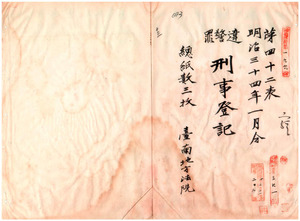 第四十二表
明治三十四年一月分
違警罪
刑事登記
總紙數三枚
臺南地方法院